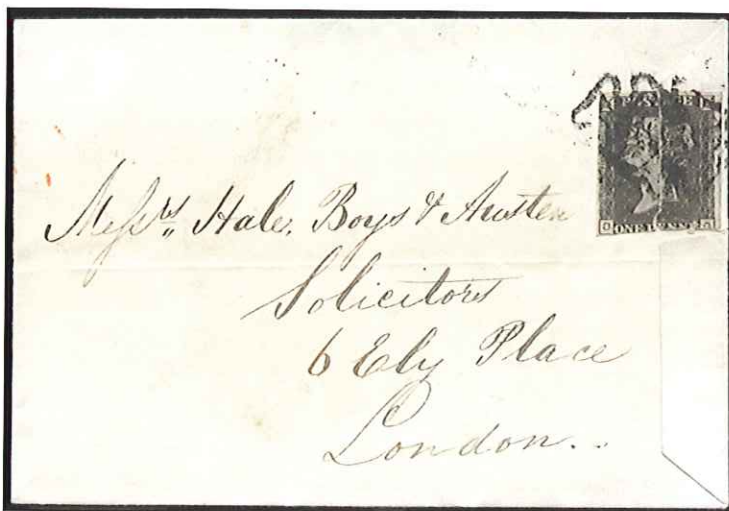 POSTAGE
ONE PENNY
Messrs,, Hale, Boys & Austen
Solicitors
6 Ely Place
London..